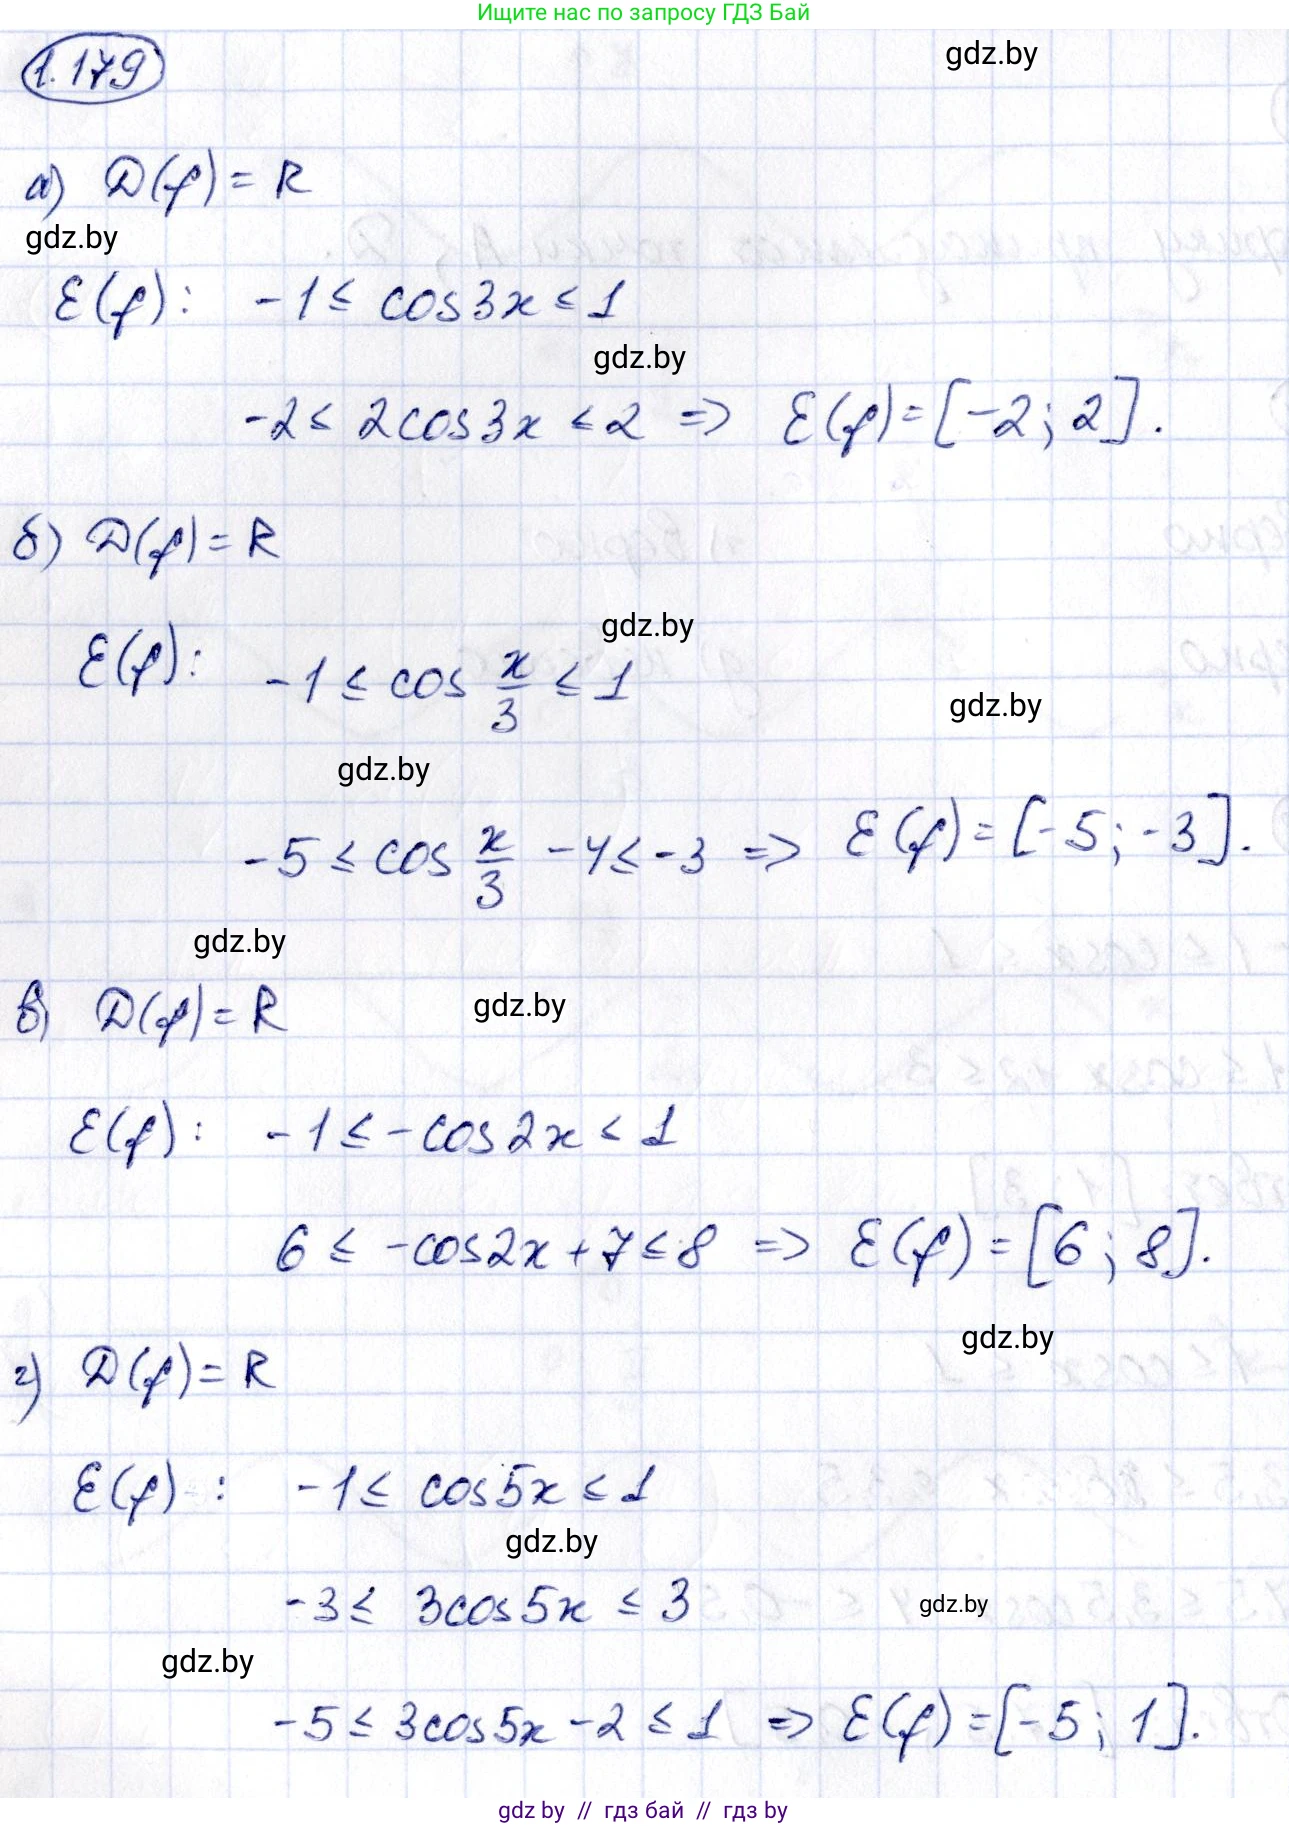 Ищите нас по запросу ГДЗ Бай
1.179
gdz.by
а) D(f) = R
gdz.by
E(f): -1 ≤ cos3x ≤ 1
gdz.by
-2 ≤ 2cos3x ≤ 2 => E(f) = [-2; 2].
б) D(f) = R
gdz.by
E(f): -1 ≤ cos x/3 ≤ 1
gdz.by
gdz.by
-5 ≤ cos x/3 -4 ≤ -3 => E(f) = [-5; -3].
gdz.by
в) D(f) = R
gdz.by
E(f): -1 ≤ -cos2x ≤ 1
6 ≤ -cos2x + 7 ≤ 8 => E(f) = [6; 8].
gdz.by
г) D(f) = R
E(f): -1 ≤ cos5x ≤ 1
gdz.by
-3 ≤ 3cos5x ≤ 3
gdz.by
gdz.by
-5 ≤ 3cos5x - 2 ≤ 1 => E(f) = [-5; 1].
gdz by // гдз бай // гдз by